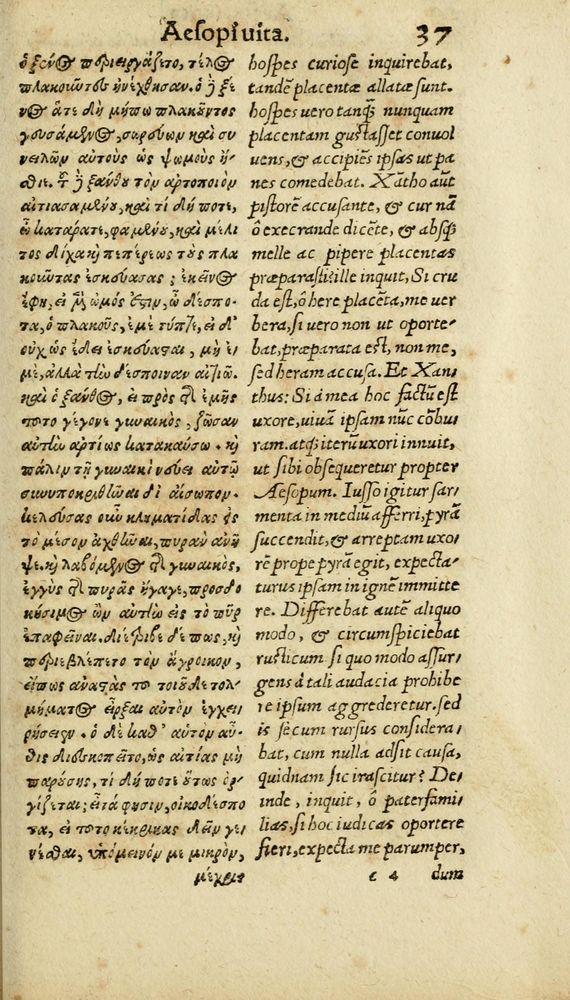 Aesopi uita. 37
ὁ ξένος περιειργάζετο, τέλος
πλακοῦντες ἠνέχθησαν. ὁ δὲ ξέ
νος ἅτε δὴ μήπω πλακοῦντος
γευσάμενος, συρύων καὶ συ
νειλῶν αὐτοὺς ὡς ψωμοὺς ἤ-
σθιε. τοῦ δὲ ξάνθου τὸν ἀρτοποιὸν
αἰτιασαμένου, καὶ τί δή ποτε,
ὦ κατάρατε, φαμένου, καὶ μέλι
τος δίχα καὶ πεπέρεως τοὺς πλα
κοῦντας ἐσκεύασας; ἐκεῖνος
ἔφη, εἰ μὲν ὠμός ἐστιν, ὦ δέσπο-
τα, ὁ πλακοῦς, ἐμὲ τύπτε, εἰ δ'
οὐχ ὡς ἔδει ἐσκεύασται, μὴ ἐ-
μὲ, ἀλλὰ τὴν δέσποιναν αἰτιῶ.
καὶ ὁ ξάνθος, εἰ πρὸς τῆς ἐμῆς
τοῦτο γέγονε γυναικὸς, ζῶσαν
αὐτὴν ἀρτίως κατακαύσω. καὶ
πάλιν τῇ γυναικὶ νεύει αὐτῷ
συνυποκριθῆναι δι' αἴσωπον.
κελεύσας οὖν κληματίδας ἐς
τὸ μέσον ἀχθῆναι, πυρὰν ἀνῆ
ψε. καὶ λαβόμενος τῆς γυναικὸς,
ἐγγὺς τῆς πυρᾶς ἤγαγε, προσδο
κήσιμος ὢν αὐτὴν εἰς τὸ πῦρ
ἐπαφεῖναι. διέτριβε δέ πως, καὶ
περιεβλέπετο τὸν ἄγροικον,
εἴπως ἀναστὰς τοῦ τοιοῦδε τολ-
μήματος εἶρξαι αὐτὸν ἐγχει-
ρήσειεν. ὁ δὲ καθ' αὑτὸν αὖ-
θις διεσκοπεῖτο, ὡς αἰτίας μὴ
παρούσης, τί δή ποτε οὕτως ὀρ-
γίζεται; εἶτά φησιν, οἰκοδέσπο
τα, εἰ τοῦτο κέκρικας δεῖν γε-
νέσθαι, ὑπόμεινόν με μικρὸν,
μέχρις
hospes curiose inquirebat,
tandē placentæ allatæ sunt.
hospes vero tanq̃ nunquam
placentam gustasset conuol
uens, & accipiēs ipsas ut pa
nes comedebat. Xātho aūt
pistorē accusante, & cur nā
ô execrande dicēte, & absq;
melle ac pipere placentas
præparasti: ille inquit, Si cru
da est, ô here placēta, me uer
bera, si uero non ut oporte-
bat, præparata est, non me,
sed heram accusa. Et Xan-
thus: Si à mea hoc factū est
uxore, uiuā ipsam nūc cōbu
ram. atq; iterū uxori innuit,
ut sibi obsequeretur propter
Aesopum. Iusso igitur sar-
menta in mediū afferri, pyrā
succendit, & arreptam uxo-
rē prope pyrā egit, expecta-
turus ipsam in ignē immitte
re. Differebat autē aliquo
modo, & circumspiciebat
rusticum si quo modo assur-
gens à tali audacia prohibe
re ipsum aggrederetur. sed
is secum rursus considera-
bat, cum nulla adsit causa,
quidnam sic irascitur? De-
inde, inquit, ô paterfami-
lias, si hoc iudicas oportere
fieri, expecta me parumper,
c 4 dum